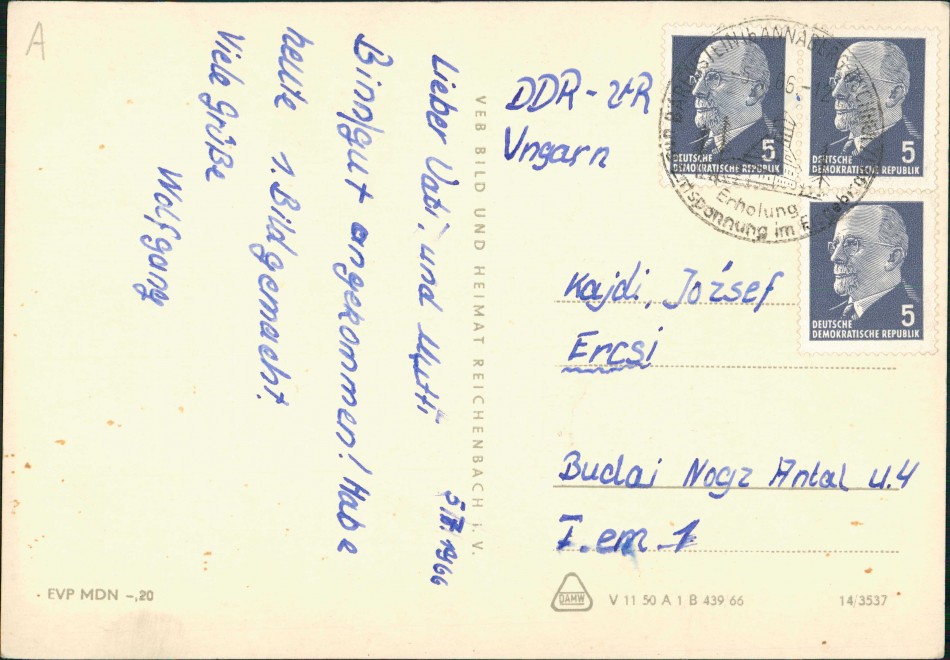 A
Lieber Vati, und Mutti 5.II.1966
Bin gut angekommen! Habe
heute 1. Bild gemacht.
Viele Grüße
Wolfgang
VEB BILD UND HEIMAT REICHENBACH i. V.
DDR -
Ungarn
ANNABERG
66.-12
Erholung
Entspannung im Erzgebirge
5
DEUTSCHE
DEMOKRATISCHE REPUBLIK
5
DEUTSCHE
DEMOKRATISCHE REPUBLIK
5
DEUTSCHE
DEMOKRATISCHE REPUBLIK
Kajdi, József
Ercsi
Budai Nagz Antal u. 4
I. em. 1
EVP MDN -,20
DAMW
V 11 50 A 1 B 439/66
14/3537